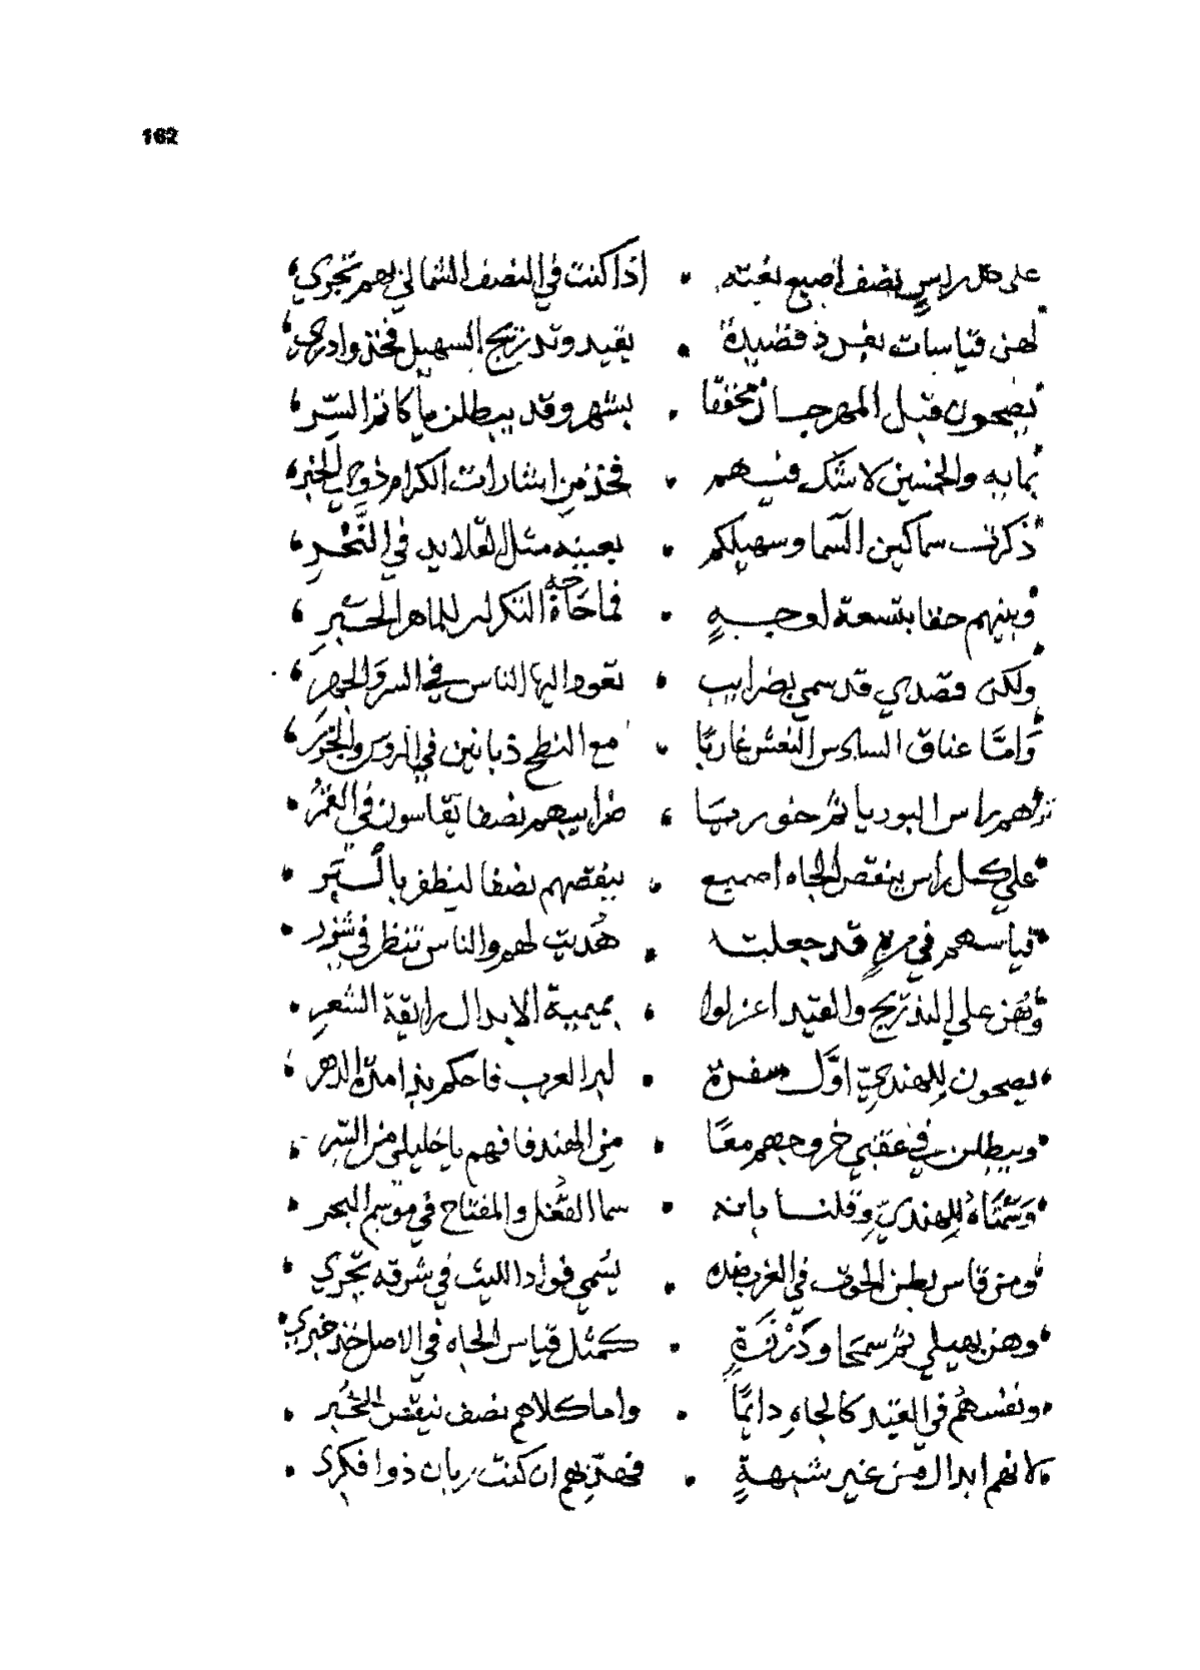 162
على كل راس نصف اصبع نغته • اذا كنت في النصف الشمالي بهم تجري
لهن قياسات بغير ذ قصيدة • بقيد وتدريج السهيل فخذ وادري
يصحون قبل المهرجان محققا • بشهر وقد يبطلن ما كاتم السر
بمايه والخمسين لا شك فيهم • فخذ من اشارات الكرام ذوي الخبر
ذكرت سماكين السما وسهيلكم • بعيبه مثل القلايد في النحر
وبينهم حقا بتسعة اوجه • فما حاجة التكرار للماهر الحبر
ولكن قصدي قد سمي بضرايب • تعود اليها الناس في السر والجهر
واما عناق النعش غاربا • مع النطح ذبانين في
ترفهم راس البوريا ثم خوريا • ضرايبهم نصفا يقاسون في الغمر
على كل راس ينقص الجاه اصبع • بنقصهم نصفا لتظفر بالستر
قياسهم في مره قد جعلت • هديت لهم والناس تنظر في شزر
وهن على التدريج والقيد اعزلوا • بميمية الابدال رايقة الشعر
يصحون للهندي اول سفرة • لبر العرب فاحكم بذا مدة الدهر
ويبطلن في عقبي خروجهم معا • من الهند فافهم يا خليلي من السر
وسمناه للهندي وقلنا بانه • سما القفل والمفتاح في موسم البحر
ومن قاس بطن الحوت في الغرب ضده • يسمى فواد الليث في شرقه تجري
وهن بهيلي ثم سمحا ودزنفرة • كمثل قياس الجاه في الاصل خذ خبري
ونفسهم في القيد كالجاه دائما • واما كلاهم نصف نيقص الخبر
لانهم ابدال من غير شبهة • فهذبهم ان كنت ربان ذوا فكري